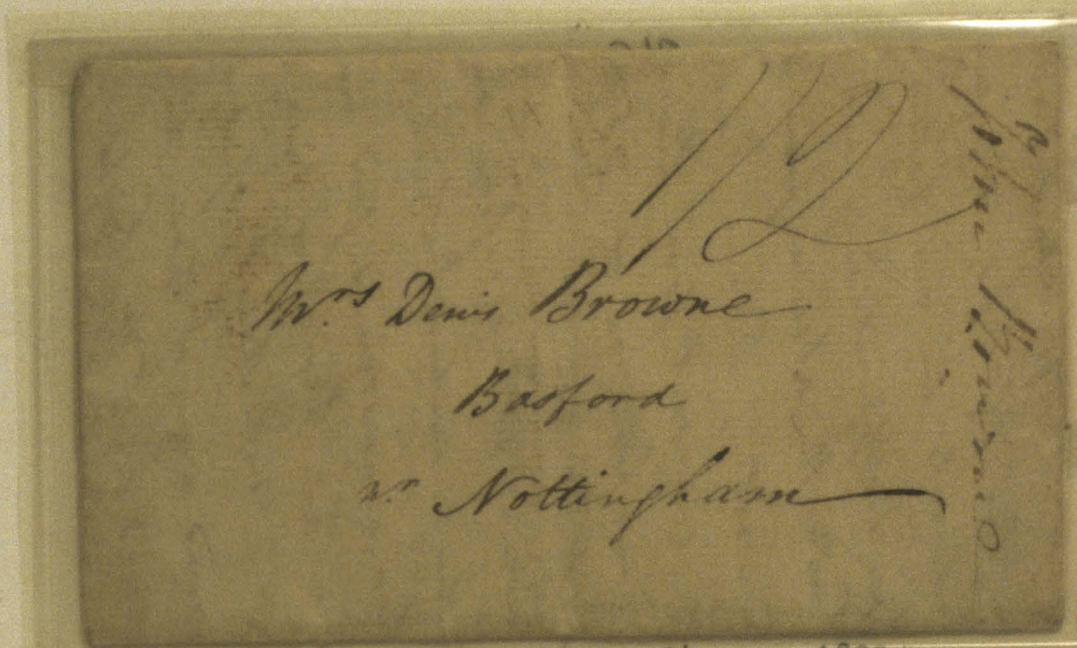 1/2
Mrs Denis Browne
Basford
nr Nottingham
Browne